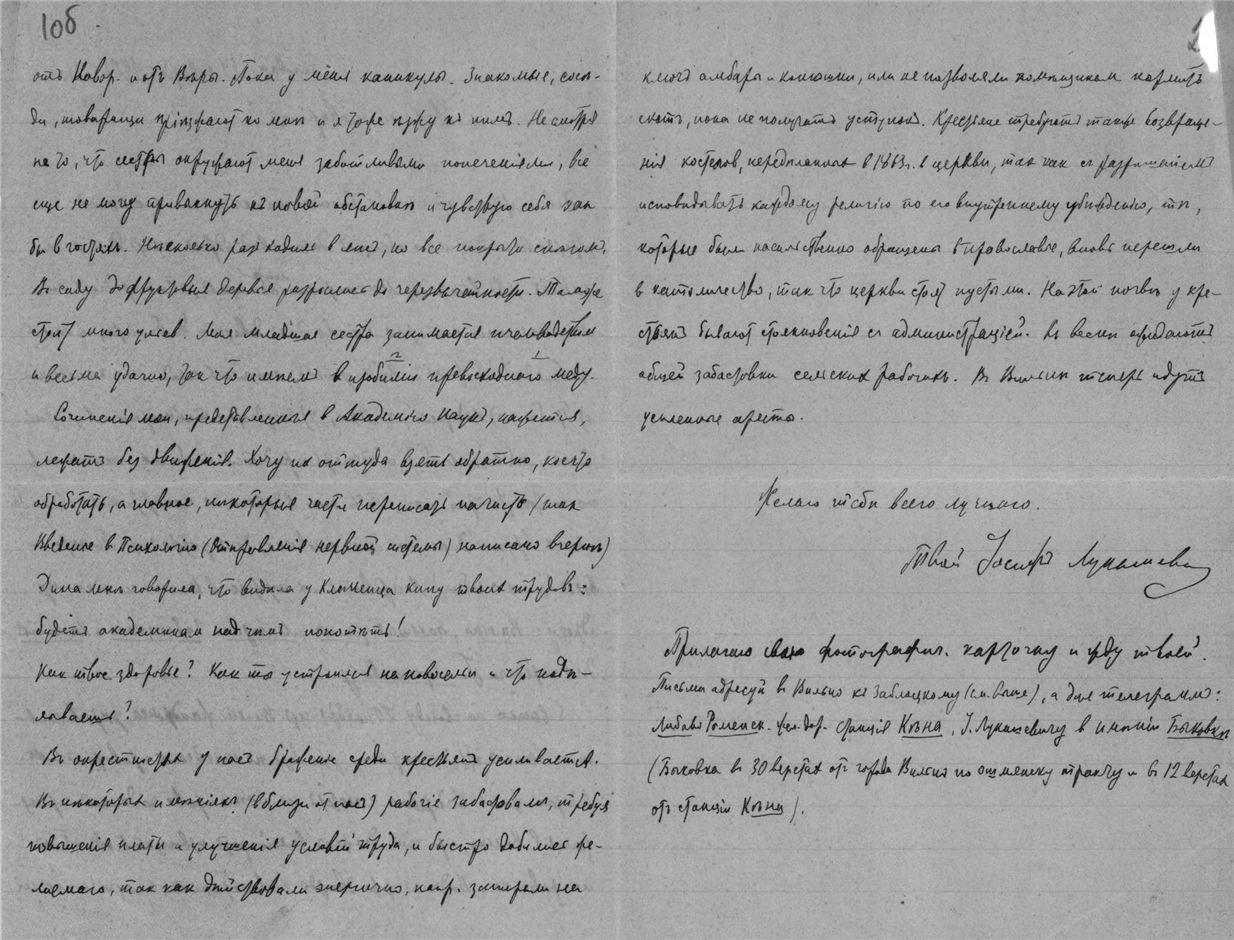 10б
отъ Новор. и отъ Вѣры. Пока у меня каникулы. Знакомые, сосѣ-
ди, товарищи пріѣзжаютъ ко мнѣ и я тоже ѣзжу къ нимъ. Несмотря
на то, что сестры окружаютъ меня заботливыми попеченіями, все
еще не могу привыкнуть къ новой обстановкѣ и чувствую себя какъ
бы въ гостяхъ. Нѣсколько разъ ходилъ въ лѣсъ, но все покрыто снѣгомъ.
Въ саду фруктовыя деревья разрослись до чрезвычайности. Тамъ же
стоятъ много ульев. Моя младшая сестра занимается пчеловодствомъ
и весьма удачно, такъ что имѣемъ в изобиліи превосходнаго меду.
Сочиненія мои, представленныя в Академію Наукъ, кажется,
лежатъ без движенія. Хочу ихъ оттуда взять обратно, кое что
обработать, а главное, нѣкоторыя части переписать начисто (такъ
Введеніе в Психологію (Отправленія нервной системы) написано вчернѣ)
Дина мнѣ говорила, что видѣла у Клеменца кипу твоихъ трудовъ:
будетъ академикам над чѣмъ попотѣть!
Как твое здоровье? Какъ ты устроился на новосельи и что подѣ-
лываешь?
Въ окрестностяхъ у насъ броженіе среди крестьянъ усиливается.
Въ нѣкоторыхъ имѣніяхъ (вблизи от насъ) рабочіе забастовали, требуя
повышенія платы и улучшенія условій труда, и быстро добились же-
лаемаго, так как дѣйствовали энергично, напр. запирали на
2
ключъ амбары и конюшни, или не позволяли помѣщикам кормить
скотъ, пока не получатъ уступокъ. Крестьяне требуютъ также возвраще-
нія костеловъ, передѣланныхъ в 1863 г. в церкви, так как съ разрѣшеніемъ
исповѣдывать каждому религію по его внутреннему убѣжденію, тѣ,
которые были насильственно обращены в православіе, вновь перешли
в католичество, так что церкви стоятъ пустыми. На этой почвѣ у кре-
стьянъ бываютъ столкновенія съ администраціей. Къ веснѣ ожидаютъ
общей забастовки сельских рабочихъ. Въ Вильнѣ теперь идутъ
усиленные аресты.
Желаю тебѣ всего лучшаго.
Твой Іосифъ Лукашевичъ
Прилагаю свою фотографич. карточку и жду твоей.
Письма адресуй в Вильно къ Заблоцкому (см. выше), а для телеграмм:
Либаво Роменск. жел. дор. станція Кѣна, І. Лукашевичу в имѣніи Быковка
(Быковка в 30 верстах отъ города Вильны по ошмянскому тракту и в 12 верстах
отъ станціи Кѣна).